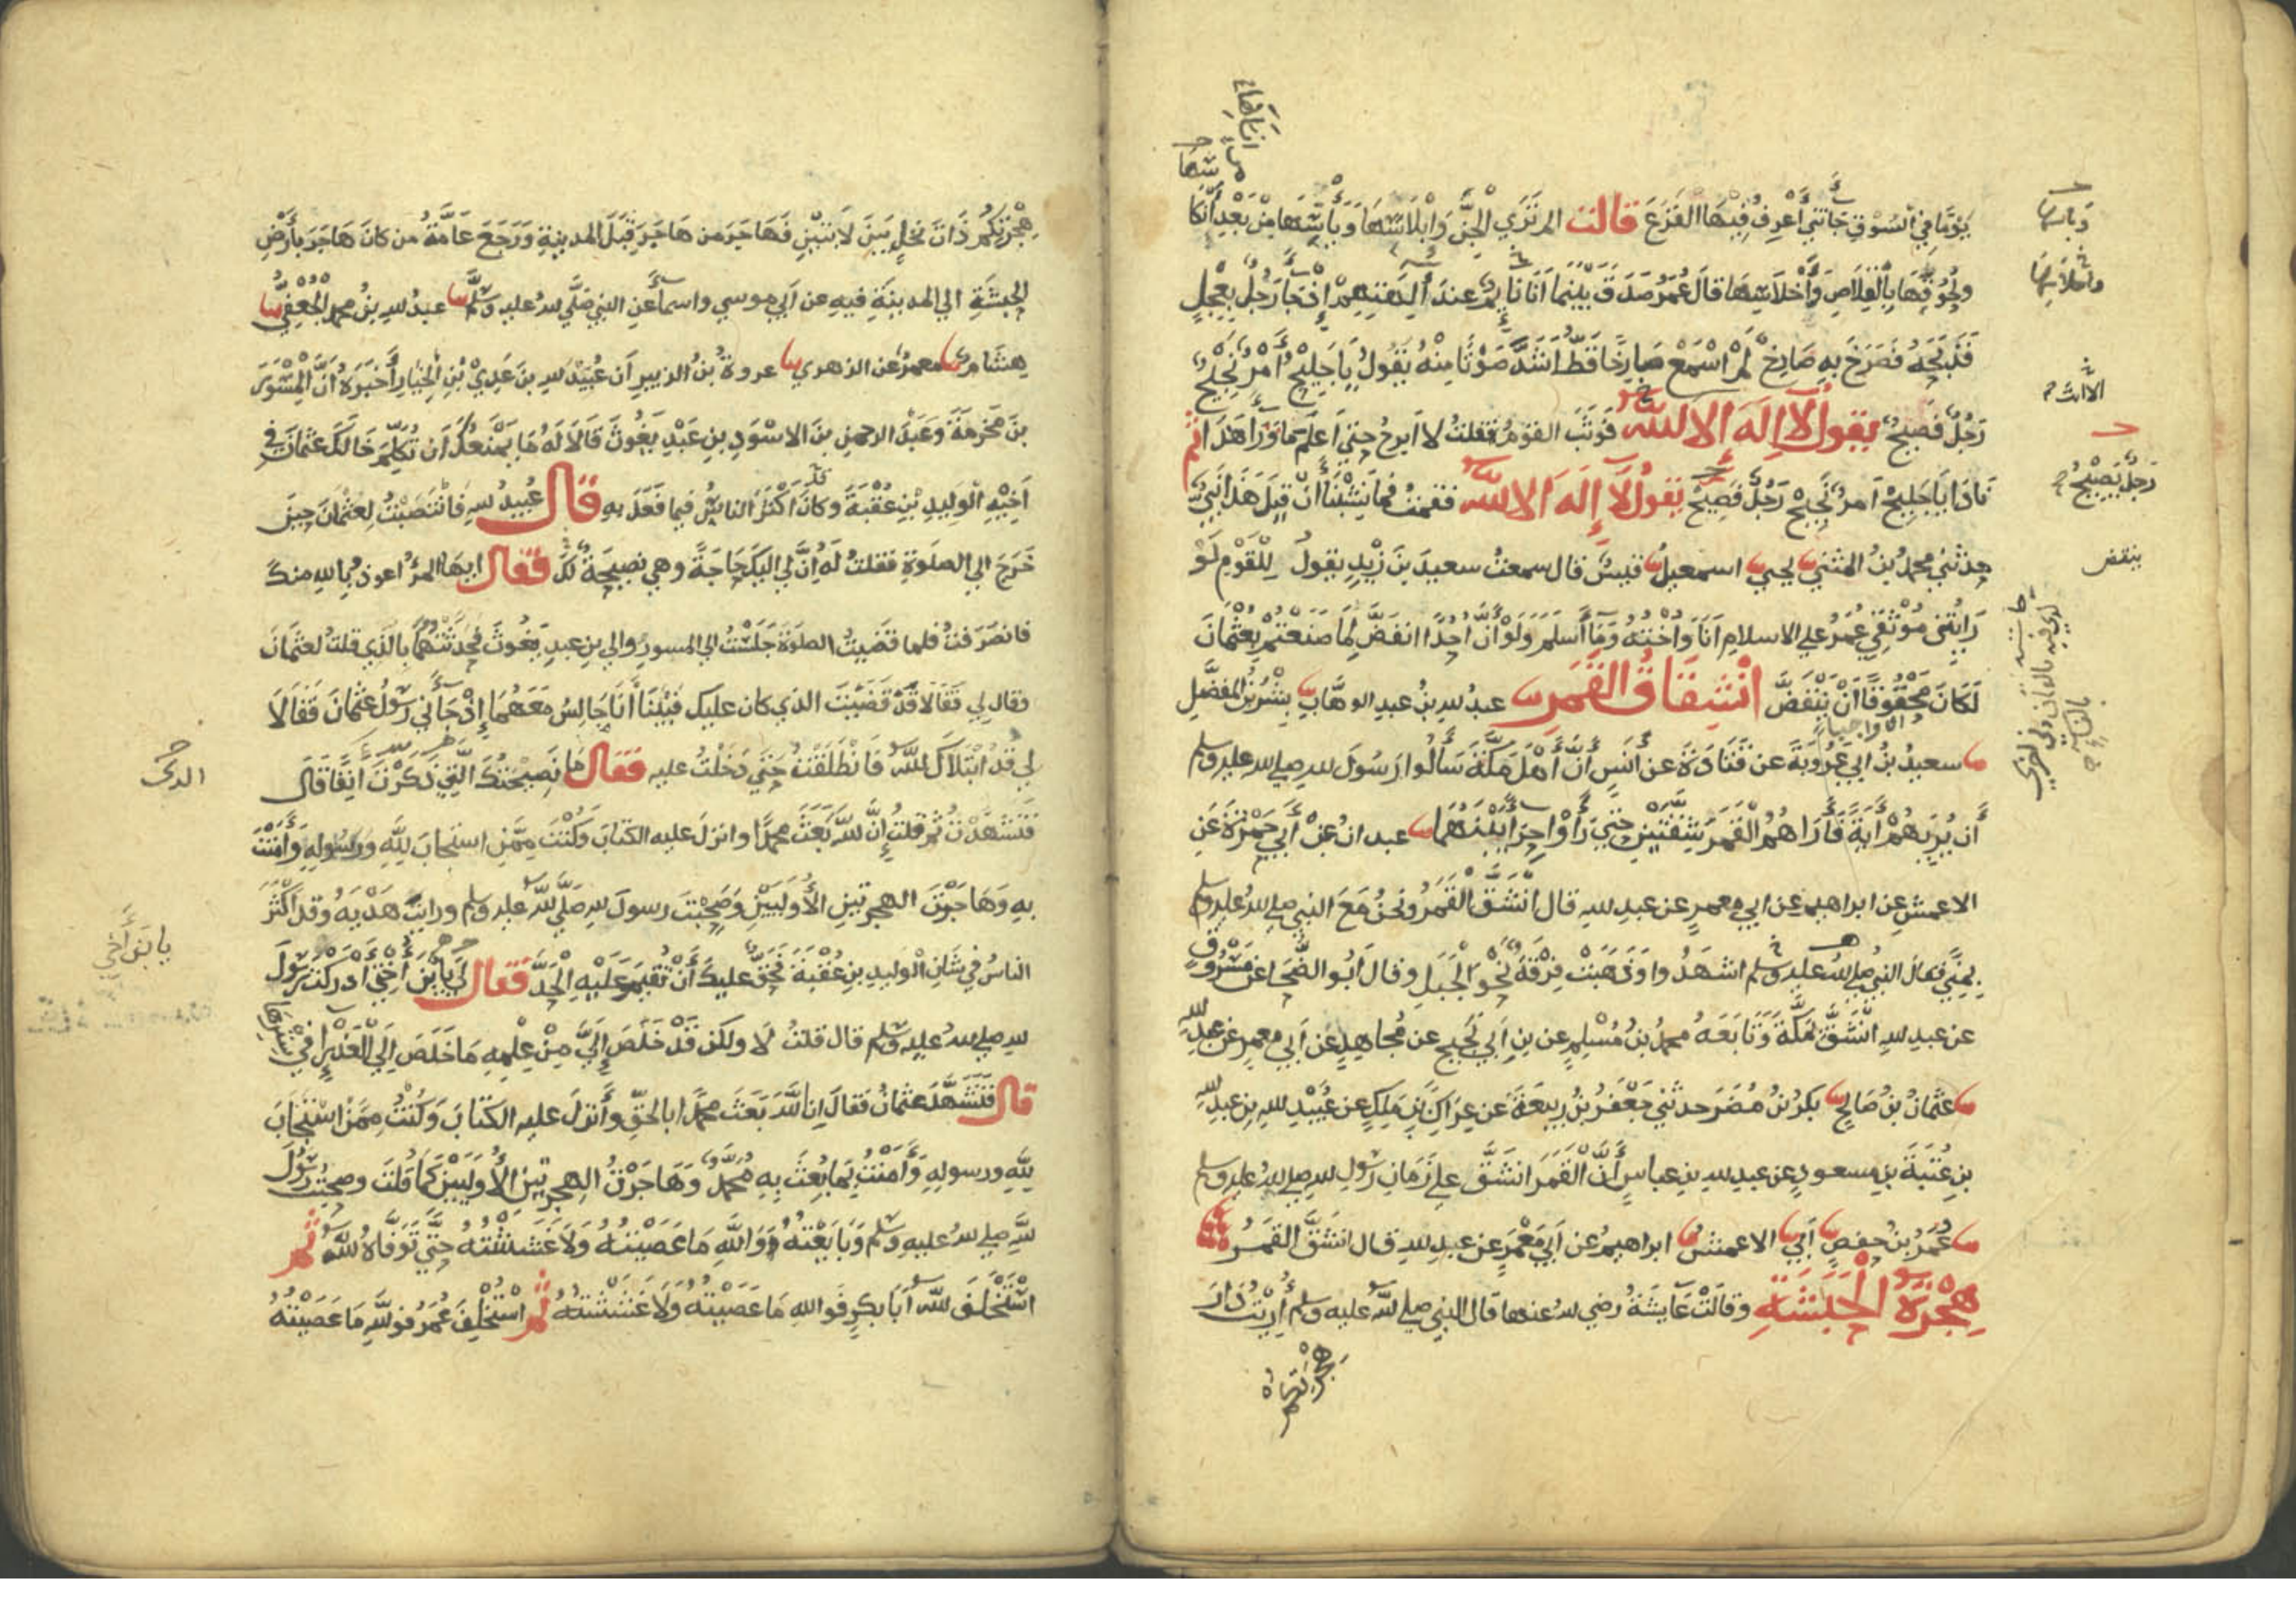 يَوْمًا فِي السُّوْقِ جَاءَتْنِي أَعْرِفُ فِيْهَا الفَزَعَ قالت الم تَرَي الْجِنَّ وَإِبْلَاسَهَا وَيَأْسَهَا مِنْ بَعْدِ إِنْكَا
ولُحُوْقَهَا بِالْقِلَاصِ وَأَحْلَاسِهَا قال عُمَرُ صَدَقَ بَيْنَمَا أَنَا نَايِمٌ عندَ آلِهَتِهِمْ إِذْ جَا رَجُلٌ بِعِجْلٍ
فَذَبَحَهُ فَصَرَخَ بِهِ صَارِخٌ لَمْ أَسْمَعْ صَارِخًا قَطُّ أَشَدَّ صَوْتًا مِنْهُ يَقُولُ يَا جَلِيحْ أَمْرٌ نَجِيْحٌ
رَجُلٌ فَصِيحٌ يقول لا إله الا الله فَوَثَبَ القومُ فقلتُ لا ابرحُ حتي اعلَمَ مَا وَرَا هَذَا ثم
نَادَا يَا جَلِيحْ امرٌ نَجِيحْ رَجُلٌ فَصِيحٌ يقولُ لا إله الا الله فقمتُ فما نَشِبْنَا أَنْ قِيلَ هَذَا نَبِيٌّ
حدثني محمدُ بنُ المثني يحيي اسمعيل قيسٌ قال سمعتُ سعيدَ بنَ زَيْدٍ يقولُ لِلْقَوْمِ لَوْ
رَايْتُنِي مُوْثِقِي عُمَرُ علي الاسلامِ انَا وَأُخْتُهُ وَمَا أَسْلَمَ وَلَوْ أَنَّ أُحُدًا انْقَضَّ لِمَا صَنَعْتُمْ بِعُثْمَانَ
لَكَانَ مَحْقُوقًا أَنْ يَنْقَضَّ انْشِقَاقُ القَمَرِ عبدُ اللهِ بنُ عبدِ الوهَّابِ بِشْرُ بْنُ المفضَّلِ
سعيدُ بنُ ابي عَرُوبَةَ عن قَتَادَةَ عن أَنَسٍ أَنَّ أَهْلَ مَكَّةَ سَأَلُوا رَسُولَ اللهِ صلي الله عليه وسلم
أن يُرِيَهُمْ آيَةً فَأَرَاهُمُ الْقَمَرَ شِقَّتَيْنِ حَتَّي رَأَوْا حِرَاءً بَيْنَهُمَا عبدان عَنْ أَبِي حَمْزَةَ عَنِ
الاعمشِ عن ابراهيمَ عن ابي معمرٍ عن عبدِ اللهِ قال انْشَقَّ القَمَرُ ونحنُ مَعَ النبي صلي الله عليه وسلم
بِمِنًي فقال النبيُّ صلي الله عليه وسلم اشهَدُوا وَذَهَبَتْ فِرْقَةٌ نَحْوَ الْجَبَلِ وقال أَبُو الضُّحَا عَنْ مَسْرُوقٍ
عن عبدِ اللهِ انْشَقَّ بِمَكَّةَ وَتَابَعَهُ محمدُ بنُ مُسْلِمٍ عن بنِ أَبِي نَجِيحٍ عن مُجَاهِدٍ عَنْ أَبِي معمرٍ عن عبدِ اللهِ
عثمانُ بنُ صَالِحٍ بكرُ بْنُ مُضَرَ حدثني جَعْفَرُ بْنُ رَبِيعَةَ عن عِرَاكِ بْنِ مَلِكٍ عن عُبَيْدِ اللهِ بنِ عبدِ اللهِ
بنِ عُتْبَةَ بنِ مسعودٍ عن عبدِ اللهِ بنِ عباسٍ أَنَّ الْقَمَرَ انشَقَّ علي زَمَانِ رَسُولِ اللهِ صلي الله عليه وسلم
عُمَرُ بْنُ حفصٍ أَبِي الاعمشُ ابراهيمُ عن أَبِي مَعْمَرٍ عن عبدِ اللهِ قال انشَقَّ القمَرُ
هِجْرَةُ الْحَبَشَةِ وقالتْ عَايشَةُ رضي الله عنها قال النبي صلي الله عليه وسلم أُرِيْتُ دَارَ
رَجُلٌ يَصِيحُ
ينقض
هِجْرَتِكُمْ ذَاتَ نخلٍ بَيْنَ لَابَتَيْنِ فَهَاجَرَ من هَاجَرَ قِبَلَ المدينةِ وَرَجَعَ عَامَّةُ من كانَ هَاجَرَ بِأَرْضِ
الحبشَةِ الي المدينةِ فيه عن ابي موسي واسماءَ عن النبي صلَّي الله عليه وسلَّم عبدُ اللهِ بنُ محمدٍ الْجُعْفِيُّ
هِشَامٌ معمرٌ عن الزهري عروةُ بنُ الزبيرِ أن عُبَيْدَ اللهِ بنَ عَدِيِّ بْنِ الْخِيَارِ أَخْبَرَهُ أَنَّ الْمِسْوَرَ
بنَ مَخْرَمَةَ وعَبْدَ الرحمنِ بنَ الاسْوَدِ بنِ عَبْدِ يَغُوثَ قَالَا لَهُ مَا يَمْنَعُكَ ان تُكَلِّمَ خَالَكَ عثمَانَ في
أَخِيْهِ الْوَلِيدِ بْنِ عُقْبَةَ وكَانَ أَكْثَرَ الناسُ فيما فَعَلَ بِهِ قال عُبيدُ اللهِ فَانْتَصَبْتُ لِعُثْمَانَ حِينَ
خَرَجَ الي الصلوةِ فقلتُ لَهُ إِنَّ لِي اليكَ حَاجَةً وهي نصيحَةٌ لَكَ فقال ايها المرْءُ اعوذ بِاللهِ منكَ
فانصَرَفتُ فلما قضَيتُ الصلوةَ جَلَسْتُ الي المسورِ والي بنِ عبدِ يَغُوثَ فحَدَّثْتُهُمَا بِالَّذِي قلتُ لعثمَانَ
وقال لِي فَقَالَا قَدْ قَضَيْتَ الذي كان عليكَ فَبَيْنَا أَنَا جَالِسٌ مَعَهُمَا إِذْ جَاءَنِي رَسُولُ عثْمَانَ فَقَالَا
لِي قَدِ ابْتَلَاكَ الله فَانْطَلَقْتُ حَتَّي دَخَلْتُ عليه فَقَالَ مَا نَصِيحَتُكَ الَّتِي ذَكَرْتَ آنِفًا قَالَ
فَتَشَهَّدْتُ ثم قلتُ إِنَّ الله بَعَثَ محمدًا وانزلَ عليه الكتابَ وَكُنْتَ مِمَّنِ استجابَ لِلَّهِ وَرسُولِهِ وَآمَنْتَ
بِهِ وَهَاجَرْتَ الهجرتينِ الأُوْلَيَيْنِ وَصَحِبْتَ رسولَ اللهِ صَلَّي الله عليه وسلم ورايتَ هَدْيَهُ وقد أَكْثَرَ
الناسُ في شَانِ الوليدِ بنِ عُقْبَةَ فحَقٌّ عليكَ أَنْ تُقِيمَ عَلَيْهِ الْحَدَّ فقال لي يا بْنَ أَخِي أَدْرَكْتَ رَسُولَ
اللهِ صلي الله عليه وسلم قال قلتُ لَا ولكن قَدْ خَلَصَ إِلَيَّ مِنْ عِلْمِهِ مَا خَلَصَ إِلَي الْعَذْرَا فِي سِتْرِهَا
قال فَتَشَهَّدَ عثمانُ فقالَ إن الله بَعَثَ محمدًا بالحَقِّ وأَنزلَ عليه الكتابَ وَكُنْتُ مِمَّنْ اسْتَجَابَ
لِلَّهِ ورسولِهِ وَآمَنْتُ بِمَا بُعِثَ بِهِ محمدٌ وَهَاجَرْتُ الهجرتينِ الأُوْلَيَيْنِ كَمَا قُلتَ وصحبتُ رَسُولَ
اللهِ صلي الله عليه وسلم وَبَايَعْتُهُ وَوَاللَّهِ مَا عَصَيْتُهُ وَلَا غَشَشْتُهُ حَتَّي تَوَفَّاهُ الله ثم
اسْتَخْلَفَ الله أَبَا بَكْرٍ فواللهِ مَا عَصَيْتُهُ وَلَا غَشَشْتُهُ ثم اسْتُخْلِفَ عُمَرُ فواللهِ مَا عَصَيْتُهُ
يا بَنَ أَخِي